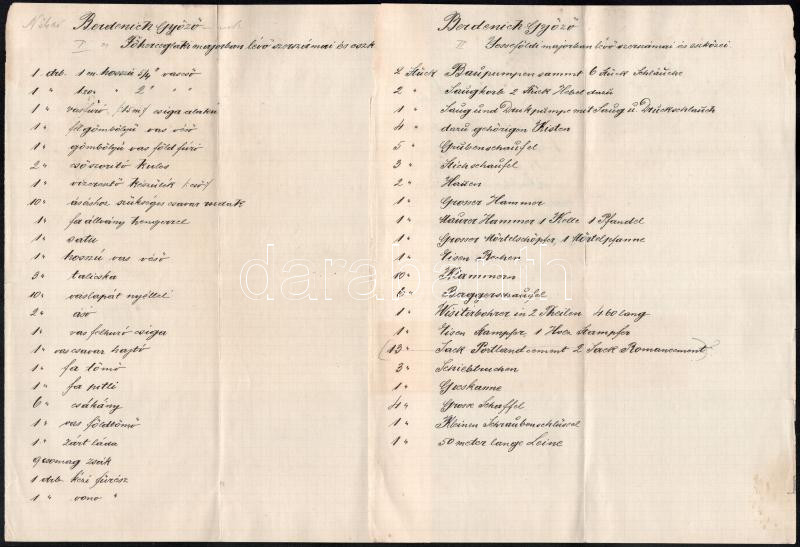 Berdenich Győző
I " Főherceglaki majorban lévő szerszámai és eszk
1 drb. 1 m. hosszú 5/4" vascső
1 " 1.20 " 2" " "
1 " vasfúró csiga alakú
1 " félgömbölyű vas véső
1 " gömbölyű vas földfúró
2 " csőszorító kulcs
1 " vizeresztő készülék /: cső :/
10 " ásáshoz szükséges csavar rudak
1 " fa állvány hengerrel
1 " satu
1 " hosszú vas véső
3 " talicska
10 " vaslapát nyéllel
2 " ásó
1 " vas felhuzó csiga
1 " vascsavar hajtó
1 " fa tömő
1 " fa pitli
6 " csákány
1 " vas földtömő
1 " zárt láda
9 csomag zsák
1 drb. kézi fűrész
1 " vonó "
Berdenich Győző
II Jessefőldi majorban lévő szerszámai és eszközei.
2 Stück Baupumpen sammt 6 Stück Schläuche
2 " Saugkorb 2 Stück Hebel dazu
1 " Saug und Druckpumpe mit Saug u. Druckschlauch
4 " dazu gehörigen Kisten
5 " Grubenschaufel
3 " Stichschaufel
2 " Hauen
1 " Grosser Hammer
1 " Maurer Hammer 1 Kelle 1 Pfandel
1 " Grosser Mörtelschöpfer, 1 Mörtelpfanne
1 " Eisen Rechen
10 " Klammern
6 " Baggerschaufel
1 " Visitirbohrer in 2 Theilen 4.60 lang
1 " Eisen Stampfer, 1 Holz Stampfer
(13 " Sack Portlandcement 2 Sack Romancement)
3 " Schiebtruchen
1 " Gieskanne
4 " Grosse Schaffel
1 " Kleinen Schraubenschlüssel
1 " 50 meter lange Leine
darabanth